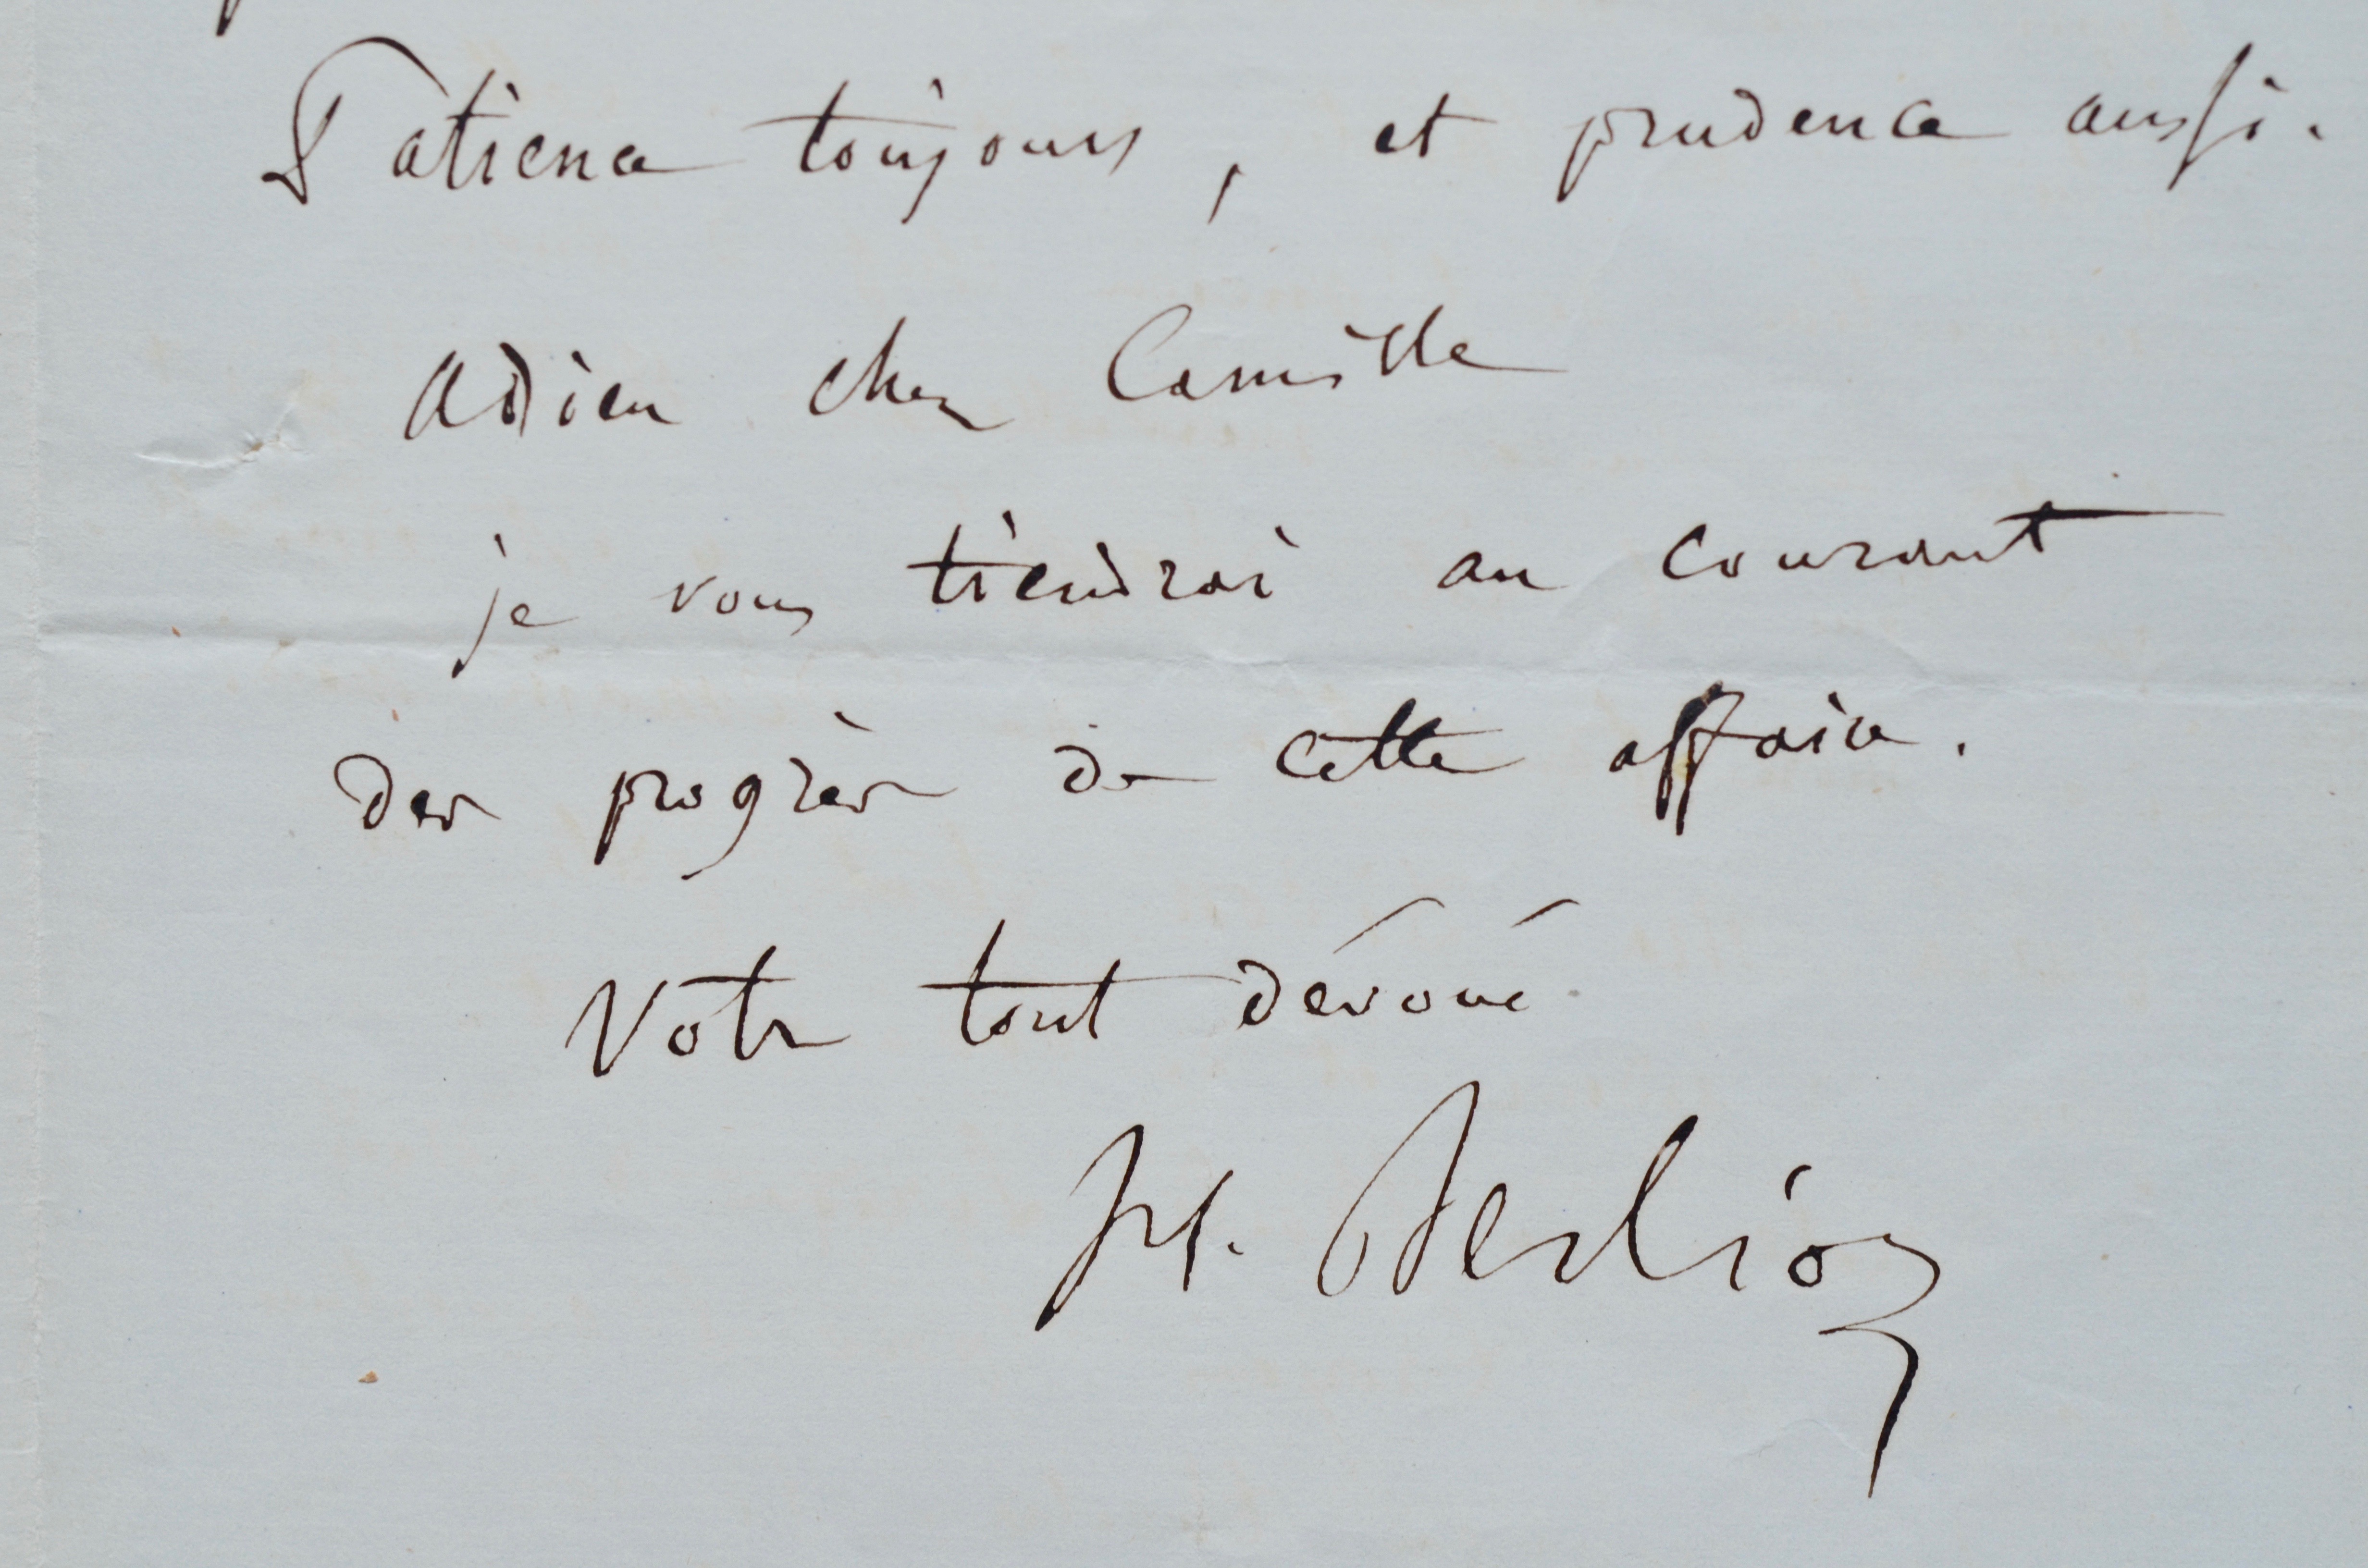 Patience toujours, et prudence aussi.
Adieu cher Camille
je vous tiendrai au courant
des progrès de cette affaire.
Votre tout dévoué
H. Berlioz